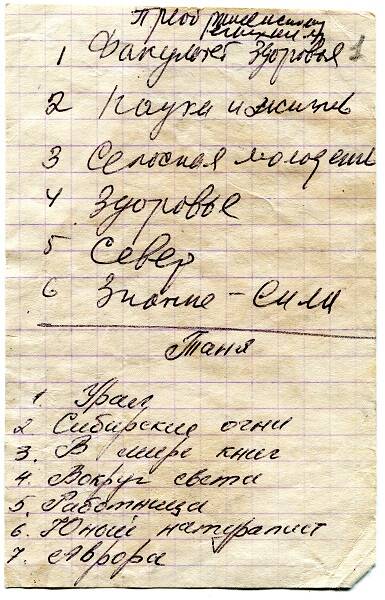 Преоб
1 Факультет Здоровья 1
2 Наука и жизнь
3 Сельская молодежь
4 Здоровье
5 Север
6 Знание - Сила
Таня
1. Урал
2 Сибирские огни
3. В мире книг
4. Вокруг света
5. Работница
6. Юный натуралист
7. Аврора